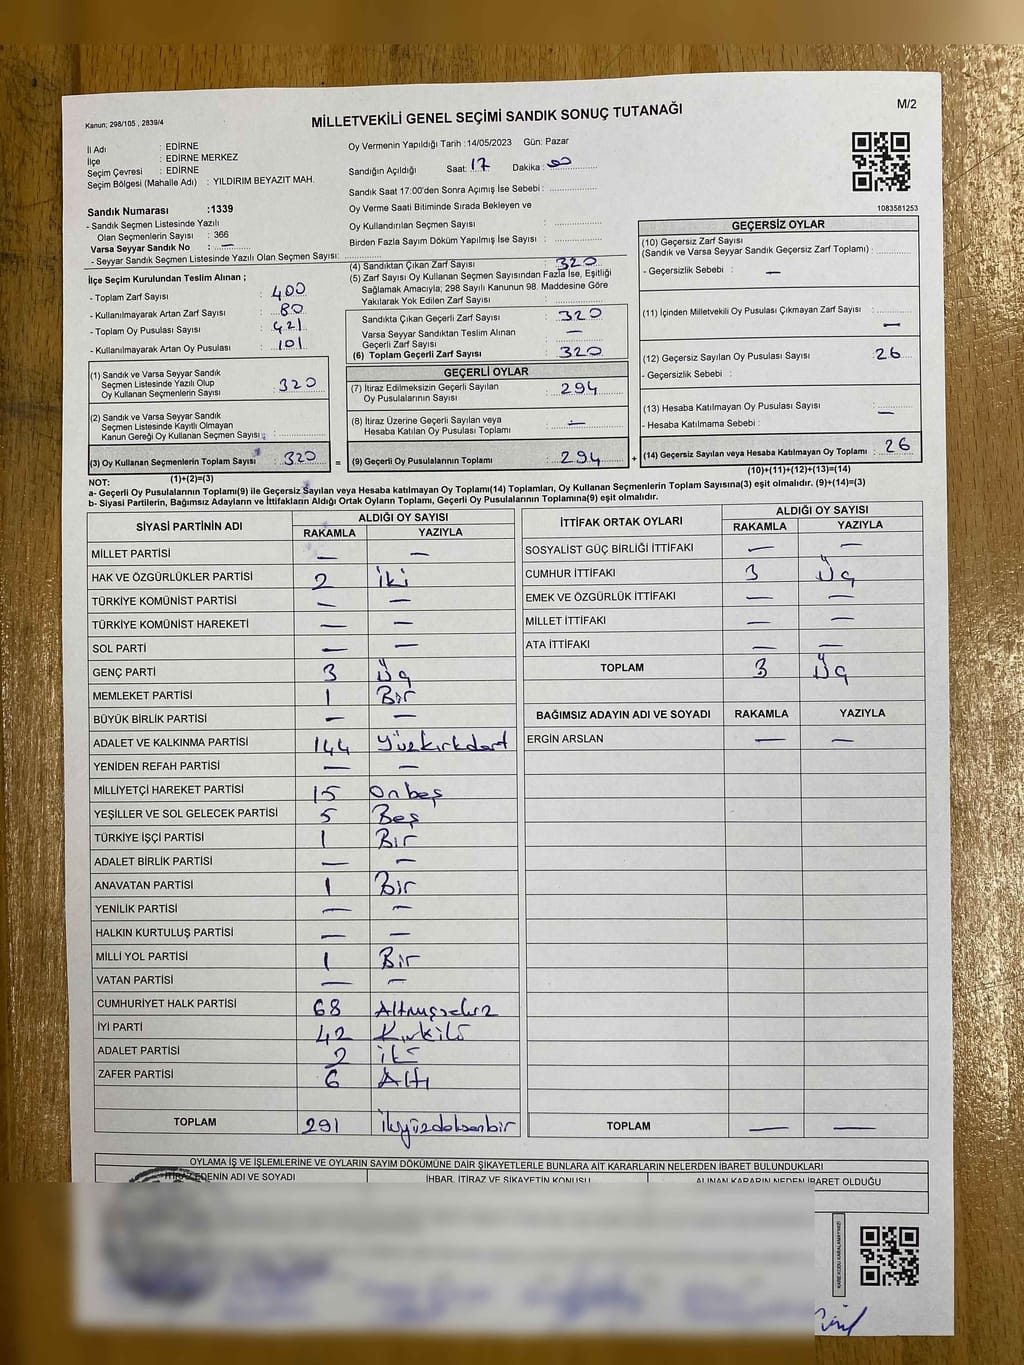 Kanun; 298/105 , 2839/4
MİLLETVEKİLİ GENEL SEÇİMİ SANDIK SONUÇ TUTANAĞI
M/2
İl Adı : EDİRNE
İlçe : EDİRNE MERKEZ
Seçim Çevresi : EDİRNE
Seçim Bölgesi (Mahalle Adı) : YILDIRIM BEYAZIT MAH.
Oy Vermenin Yapıldığı Tarih :14/05/2023 Gün: Pazar
Sandığın Açıldığı Saat: 17 Dakika: 00
Sandık Saat 17:00'den Sonra Açımış İse Sebebi :
Oy Verme Saati Bitiminde Sırada Bekleyen ve
Oy Kullandırılan Seçmen Sayısı :
Birden Fazla Sayım Döküm Yapılmış İse Sayısı :
1083581253
Sandık Numarası :1339
- Sandık Seçmen Listesinde Yazılı
Olan Seçmenlerin Sayısı : 366
Varsa Seyyar Sandık No : —
- Seyyar Sandık Seçmen Listesinde Yazılı Olan Seçmen Sayısı:
İlçe Seçim Kurulundan Teslim Alınan ;
- Toplam Zarf Sayısı : 400
- Kullanılmayarak Artan Zarf Sayısı : 80
- Toplam Oy Pusulası Sayısı : 421
- Kullanılmayarak Artan Oy Pusulası : 101
(1) Sandık ve Varsa Seyyar Sandık
Seçmen Listesinde Yazılı Olup
Oy Kullanan Seçmenlerin Sayısı : 320
(2) Sandık ve Varsa Seyyar Sandık
Seçmen Listesinde Kayıtlı Olmayan
Kanun Gereği Oy Kullanan Seçmen Sayısı :
(3) Oy Kullanan Seçmenlerin Toplam Sayısı : 320
(1)+(2)=(3)
(4) Sandıktan Çıkan Zarf Sayısı : 320
(5) Zarf Sayısı Oy Kullanan Seçmen Sayısından Fazla İse, Eşitliği
Sağlamak Amacıyla; 298 Sayılı Kanunun 98. Maddesine Göre
Yakılarak Yok Edilen Zarf Sayısı :
Sandıkta Çıkan Geçerli Zarf Sayısı : 320
Varsa Seyyar Sandıktan Teslim Alınan
Geçerli Zarf Sayısı : —
(6) Toplam Geçerli Zarf Sayısı : 320
GEÇERLİ OYLAR
(7) İtiraz Edilmeksizin Geçerli Sayılan
Oy Pusulalarının Sayısı : 294
(8) İtiraz Üzerine Geçerli Sayılan veya
Hesaba Katılan Oy Pusulası Toplamı : —
= (9) Geçerli Oy Pusulalarının Toplamı : 294 +
GEÇERSİZ OYLAR
(10) Geçersiz Zarf Sayısı
(Sandık ve Varsa Seyyar Sandık Geçersiz Zarf Toplamı) :
- Geçersizlik Sebebi : —
(11) İçinden Milletvekili Oy Pusulası Çıkmayan Zarf Sayısı : —
(12) Geçersiz Sayılan Oy Pusulası Sayısı : 26
- Geçersizlik Sebebi :
(13) Hesaba Katılmayan Oy Pusulası Sayısı : —
- Hesaba Katılmama Sebebi :
(14) Geçersiz Sayılan veya Hesaba Katılmayan Oy Toplamı : 26
(10)+(11)+(12)+(13)=(14)
NOT:
a- Geçerli Oy Pusulalarının Toplamı(9) ile Geçersiz Sayılan veya Hesaba katılmayan Oy Toplamı(14) Toplamları, Oy Kullanan Seçmenlerin Toplam Sayısına(3) eşit olmalıdır. (9)+(14)=(3)
b- Siyasi Partilerin, Bağımsız Adayların ve İttifakların Aldığı Ortak Oyların Toplamı, Geçerli Oy Pusulalarının Toplamına(9) eşit olmalıdır.
SİYASİ PARTİNİN ADI ALDIĞI OY SAYISI
RAKAMLA YAZIYLA
MİLLET PARTİSİ — —
HAK VE ÖZGÜRLÜKLER PARTİSİ 2 İki
TÜRKİYE KOMÜNİST PARTİSİ — —
TÜRKİYE KOMÜNİST HAREKETİ — —
SOL PARTİ — —
GENÇ PARTİ 3 Üç
MEMLEKET PARTİSİ 1 Bir
BÜYÜK BİRLİK PARTİSİ — —
ADALET VE KALKINMA PARTİSİ 144 Yüzkırkdört
YENİDEN REFAH PARTİSİ — —
MİLLİYETÇİ HAREKET PARTİSİ 15 Onbeş
YEŞİLLER VE SOL GELECEK PARTİSİ 5 Beş
TÜRKİYE İŞÇİ PARTİSİ 1 Bir
ADALET BİRLİK PARTİSİ — —
ANAVATAN PARTİSİ 1 Bir
YENİLİK PARTİSİ — —
HALKIN KURTULUŞ PARTİSİ — —
MİLLİ YOL PARTİSİ 1 Bir
VATAN PARTİSİ — —
CUMHURİYET HALK PARTİSİ 68 Altmışsekiz
İYİ PARTİ 42 Kırkiki
ADALET PARTİSİ 2 İki
ZAFER PARTİSİ 6 Altı
TOPLAM 291 İkiyüzdoksanbir
İTTİFAK ORTAK OYLARI ALDIĞI OY SAYISI
RAKAMLA YAZIYLA
SOSYALİST GÜÇ BİRLİĞİ İTTİFAKI — —
CUMHUR İTTİFAKI 3 Üç
EMEK VE ÖZGÜRLÜK İTTİFAKI — —
MİLLET İTTİFAKI — —
ATA İTTİFAKI — —
TOPLAM 3 Üç
BAĞIMSIZ ADAYIN ADI VE SOYADI RAKAMLA YAZIYLA
ERGİN ARSLAN — —
TOPLAM — —
OYLAMA İŞ VE İŞLEMLERİNE VE OYLARIN SAYIM DÖKÜMÜNE DAİR ŞİKAYETLERLE BUNLARA AİT KARARLARIN NELERDEN İBARET BULUNDUKLARI
İTİRAZ EDENİN ADI VE SOYADI İHBAR, İTİRAZ VE ŞİKAYETİN KONUSU ALINAN KARARIN NEDEN İBARET OLDUĞU
KAREKODU KARALAMAYINIZ!